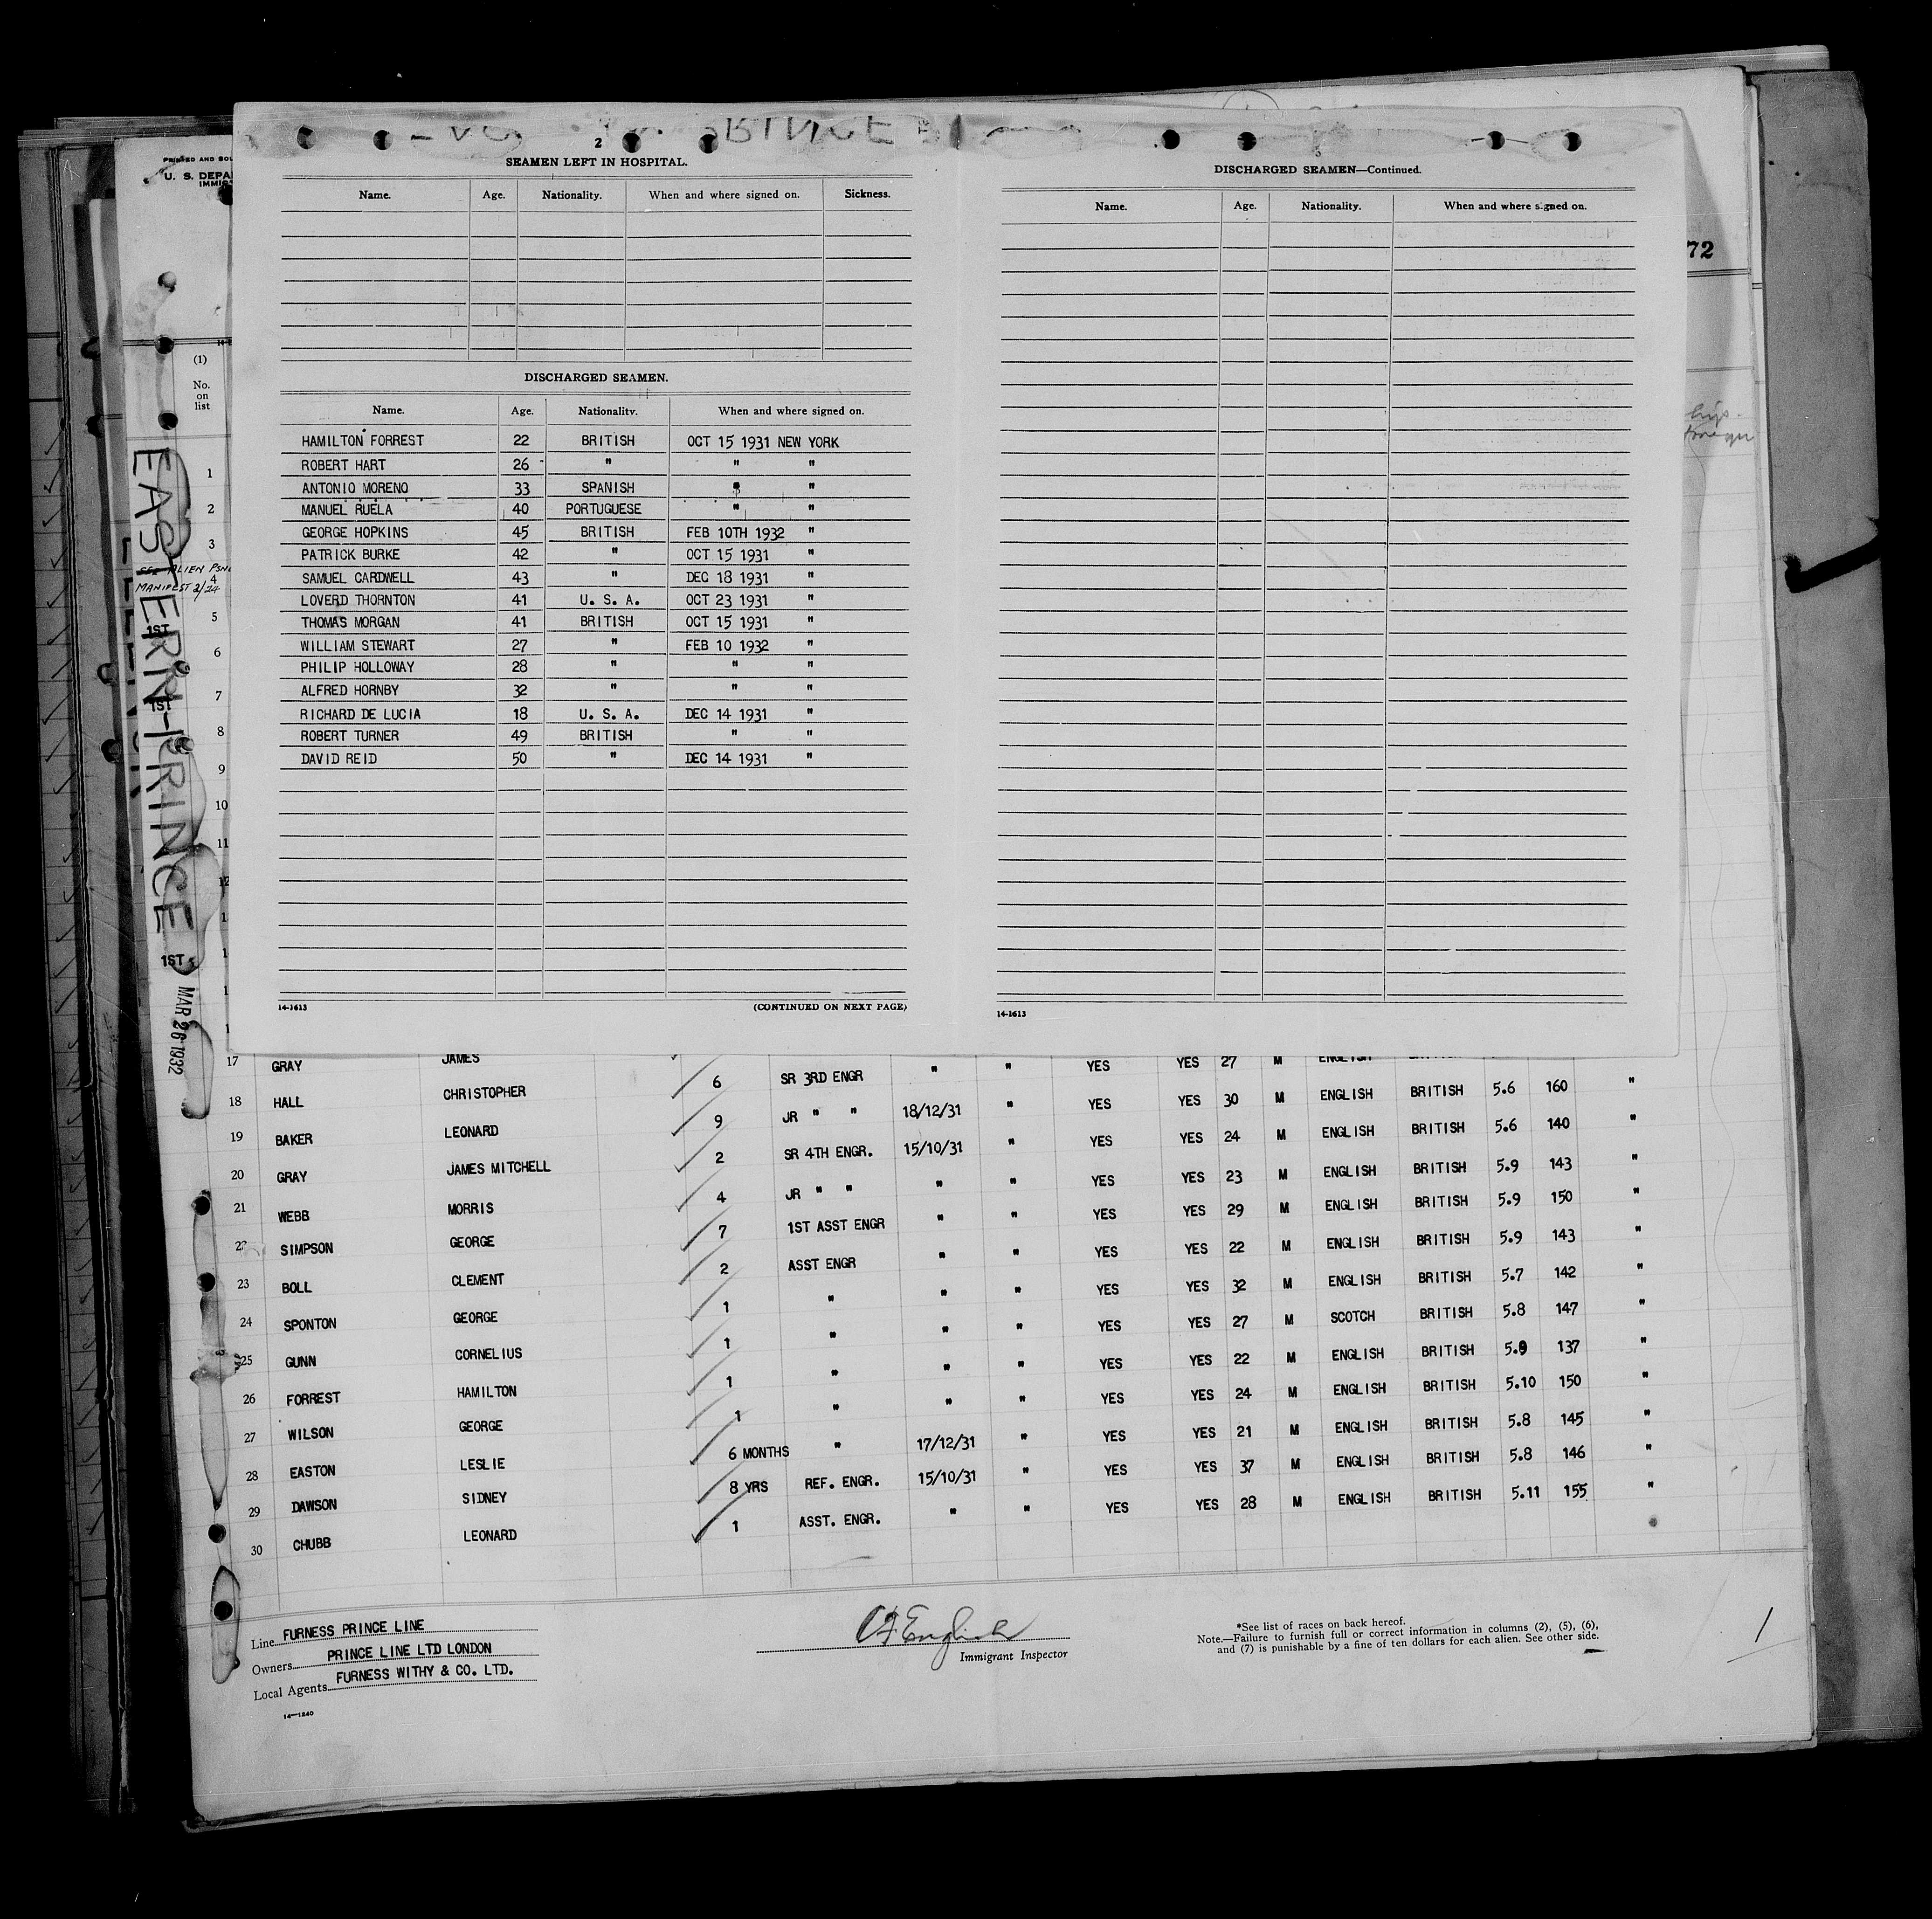 2
SEAMEN LEFT IN HOSPITAL.
Name. Age. Nationality. When and where signed on. Sickness.
DISCHARGED SEAMEN.
Name. Age. Nationality. When and where signed on.
HAMILTON FORREST 22 BRITISH OCT 15 1931 NEW YORK
ROBERT HART 26 " " "
ANTONIO MORENO 33 SPANISH " "
MANUEL RUELA 40 PORTUGUESE " "
GEORGE HOPKINS 45 BRITISH FEB 10TH 1932 "
PATRICK BURKE 42 " OCT 15 1931 "
SAMUEL CARDWELL 43 " DEC 18 1931 "
LOVERD THORNTON 41 U. S. A. OCT 23 1931 "
THOMAS MORGAN 41 BRITISH OCT 15 1931 "
WILLIAM STEWART 27 " FEB 10 1932 "
PHILIP HOLLOWAY 28 " " "
ALFRED HORNBY 32 " " "
RICHARD DE LUCIA 18 U. S. A. DEC 14 1931 "
ROBERT TURNER 49 BRITISH " "
DAVID REID 50 " DEC 14 1931 "
14-1613 (CONTINUED ON NEXT PAGE)
DISCHARGED SEAMEN—Continued.
Name. Age. Nationality. When and where signed on.
14-1613
72
U. S. DEPA
(1)
No.
on
list
1
2
3
4
5
6
7
8
9
10
11
ALIEN
MANIFEST 2/24
1ST
1ST
1ST
EASTERN PRINCE
MAR 26 1932
17 GRAY JAMES " " YES YES 27 M ENGLISH
18 HALL CHRISTOPHER 6 SR 3RD ENGR " YES YES 30 M ENGLISH BRITISH 5.6 160 "
19 BAKER LEONARD 9 JR " " 18/12/31 " YES YES 24 M ENGLISH BRITISH 5.6 140 "
20 GRAY JAMES MITCHELL 2 SR 4TH ENGR. 15/10/31 " YES YES 23 M ENGLISH BRITISH 5.9 143 "
21 WEBB MORRIS 4 JR " " " " YES YES 29 M ENGLISH BRITISH 5.9 150 "
22 SIMPSON GEORGE 7 1ST ASST ENGR " " YES YES 22 M ENGLISH BRITISH 5.9 143 "
23 BOLL CLEMENT 2 ASST ENGR " " YES YES 32 M ENGLISH BRITISH 5.7 142 "
24 SPONTON GEORGE 1 " " " YES YES 27 M SCOTCH BRITISH 5.8 147 "
25 GUNN CORNELIUS 1 " " " YES YES 22 M ENGLISH BRITISH 5.9 137 "
26 FORREST HAMILTON 1 " " " YES YES 24 M ENGLISH BRITISH 5.10 150 "
27 WILSON GEORGE 1 " " " YES YES 21 M ENGLISH BRITISH 5.8 145 "
28 EASTON LESLIE 6 MONTHS " 17/12/31 " YES YES 37 M ENGLISH BRITISH 5.8 146 "
29 DAWSON SIDNEY 8 YRS REF. ENGR. 15/10/31 " YES YES 28 M ENGLISH BRITISH 5.11 155 "
30 CHUBB LEONARD 1 ASST. ENGR. " "
Line FURNESS PRINCE LINE
Owners PRINCE LINE LTD LONDON
Local Agents FURNESS WITHY & CO. LTD.
14—1240
English
Immigrant Inspector
*See list of races on back hereof.
Note.—Failure to furnish full or correct information in columns (2), (5), (6),
and (7) is punishable by a fine of ten dollars for each alien. See other side.
1